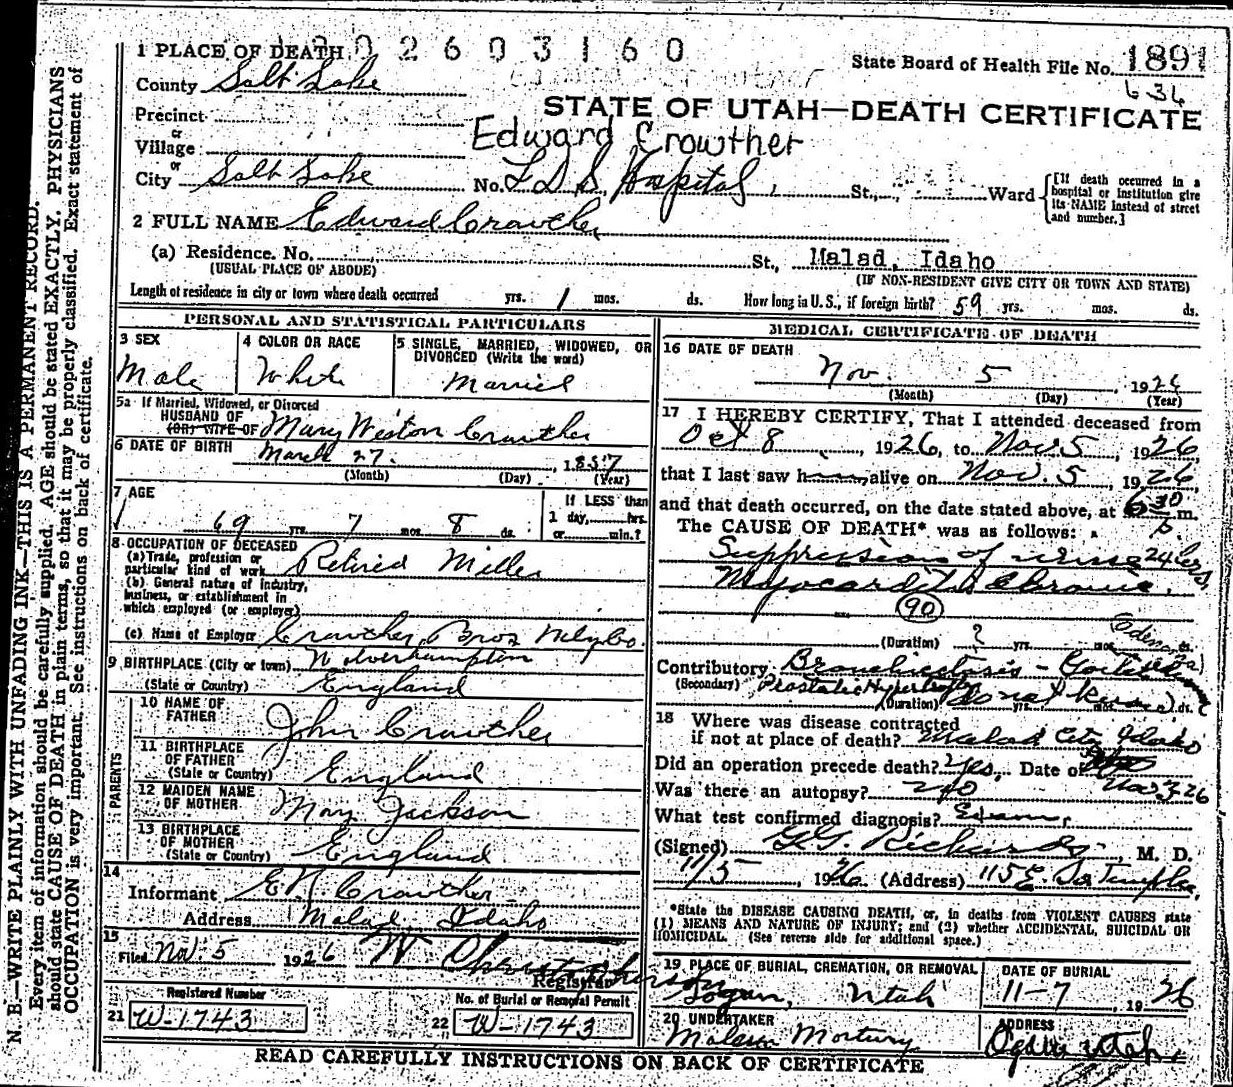 1 PLACE OF DEATH 2603160
State Board of Health File No. 1891
County Salt Lake
636
STATE OF UTAH—DEATH CERTIFICATE
Precinct
or
Edward Crowther
Village
or
City Salt Lake No. L D S Hospital, St., Ward
[If death occurred in a hospital or institution give its NAME instead of street and number.]
2 FULL NAME Edward Crowther
(a) Residence. No. St., Malad, Idaho
(USUAL PLACE OF ABODE) (IF NON-RESIDENT GIVE CITY OR TOWN AND STATE)
Length of residence in city or town where death occurred yrs. 1 mos. ds. How long in U.S., if foreign birth? 59 yrs. mos. ds.
PERSONAL AND STATISTICAL PARTICULARS
3 SEX
Male
4 COLOR OR RACE
White
5 SINGLE, MARRIED, WIDOWED, OR
DIVORCED (Write the word)
Married
5a If Married, Widowed, or Divorced
HUSBAND OF
(OR) WIFE OF Mary Weston Crowther
6 DATE OF BIRTH March 27, 1857
(Month) (Day) (Year)
7 AGE
69 yrs. 7 mos. 8 ds.
If LESS than
1 day, hrs.
or min.?
8 OCCUPATION OF DECEASED
(a) Trade, profession or
particular kind of work Retired Miller
(b) General nature of industry,
business, or establishment in
which employed (or employer)
(c) Name of Employer Crowther Bros
9 BIRTHPLACE (City or town) Wolverhampton
(State or Country) England
PARENTS
10 NAME OF
FATHER John Crowther
11 BIRTHPLACE
OF FATHER
(State or Country) England
12 MAIDEN NAME
OF MOTHER Mary Jackson
13 BIRTHPLACE
OF MOTHER
(State or Country) England
14
Informant E N Crowther
Address Malad Idaho
15
Filed Nov. 5 1926 W Christopherson
Registrar
Registered Number
21 W-1743
No. of Burial or Removal Permit
22 W-1743
MEDICAL CERTIFICATE OF DEATH
16 DATE OF DEATH
Nov. 5, 1926
(Month) (Day) (Year)
17 I HEREBY CERTIFY, That I attended deceased from
Oct 8, 1926, to Nov. 5, 1926
that I last saw him alive on Nov. 5, 1926
and that death occurred, on the date stated above, at 6 30 p. m.
The CAUSE OF DEATH* was as follows:
Suppression of urine 24 hrs,
Myocarditis Chronic.
90
(Duration) ? yrs. mos. ds.
Contributory Bronchiectasis -
(Secondary) Prostatic Hypertrophy
(Duration) yrs. mos. ds.
18 Where was disease contracted
if not at place of death? Malad City Idaho
Did an operation precede death? Yes, Date of Nov 3 26
Was there an autopsy? no
What test confirmed diagnosis? Exam,
(Signed) G.G. Richards M. D.
11/5, 1926 (Address) 115 E So Temple
*State the DISEASE CAUSING DEATH, or, in deaths from VIOLENT CAUSES state
(1) MEANS AND NATURE OF INJURY; and (2) whether ACCIDENTAL, SUICIDAL OR
HOMICIDAL. (See reverse side for additional space.)
19 PLACE OF BURIAL, CREMATION, OR REMOVAL
Logan, Utah
DATE OF BURIAL
11-7, 1926
20 UNDERTAKER
ADDRESS
Ogden Utah
READ CAREFULLY INSTRUCTIONS ON BACK OF CERTIFICATE
N. B.—WRITE PLAINLY WITH UNFADING INK—THIS IS A PERMANENT RECORD.
Every item of information should be carefully supplied. AGE should be stated EXACTLY. PHYSICIANS
should state CAUSE OF DEATH in plain terms, so that it may be properly classified. Exact statement of
OCCUPATION is very important. See instructions on back of certificate.